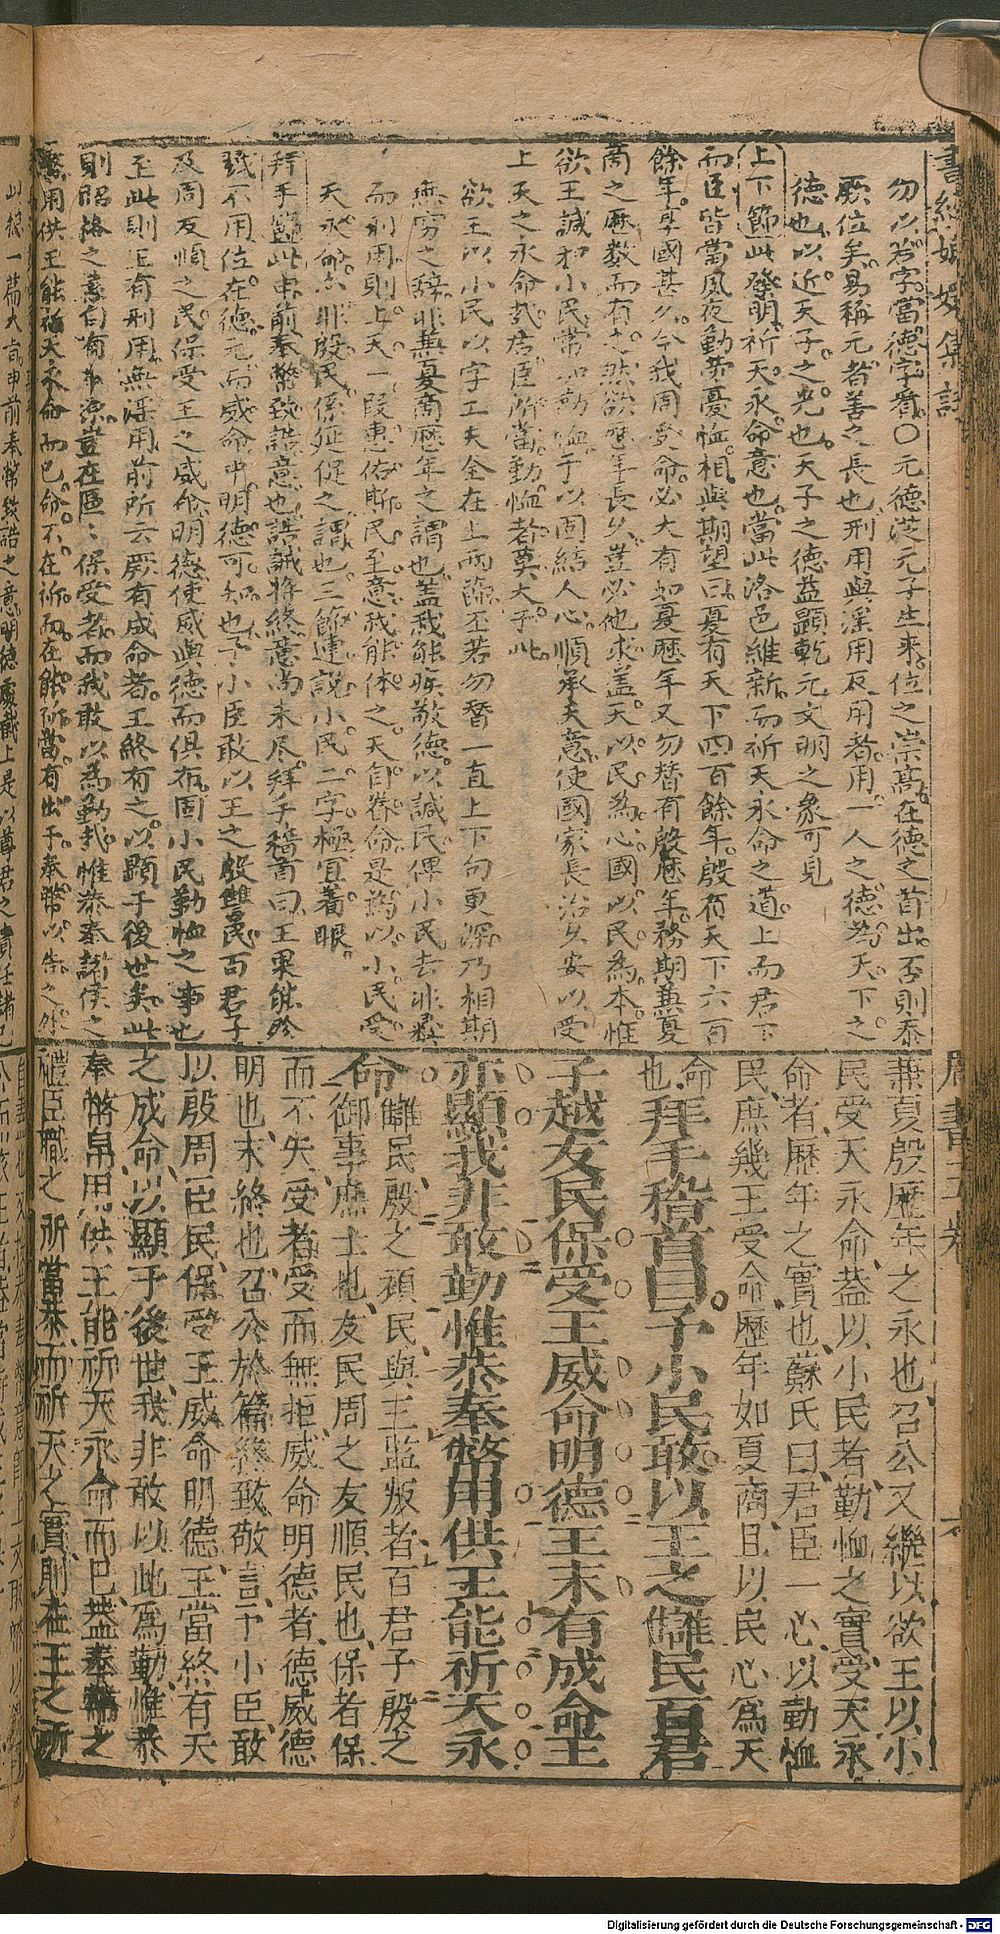 勿以若字當德字看○元德從元子生來位之崇高在德之首出否則忝
厥位矣易稱元者善之長也刑用與淫用反用者用一人之德為天下之
德也以近天子之光也天子之德益顯乾元文明之象可見
上下節此發明祈天永命意也當此洛邑維新而祈天永命之道上而君下
而臣皆當夙夜勤勞憂恤相與期望曰夏有天下四百餘年殷有天下六百
餘年享國甚久今我周受命必大有如夏歷年又勿替有殷歷年務期兼夏
商之歷数而有之然欲歷年長久豈必他求盖天以民為心國以民為本惟
欲王諴和小民常加勤恤于以固結人心順承天意使國家長治久安以受
上天之永命哉君臣所當勤恤者莫大于此
欲王以小民以字工夫全在上兩節丕若勿替一直上下句更深乃相期
無窮之辭非兼夏商歷年之謂也盖我能疾敬德以諴民俾小民去非彝
而刑用則上天一段惠佑斯民至意我能体之天卽眷命是爲以小民受
天永命亦非殷民係延促之謂也三節連說小民二字極宜着眼
拜手節此申前奉幣致誥意也誥誠將終意尚未尽拜手稽首曰王果能於
我不用位在德元而威命中明德可知也予小臣敢以王之殷讎民百君子
及周友順之民保受王之威命明德使威與德而俱布固小民勤恤之事也
至此則王有刑用無淫用前所云厥有成命者王終有之以顯于後世矣此
則昭格之素自有本源豈在區〻保受者而我敢以為勤哉惟恭奉諸侯之
幣用供王能祈天永命而已命不在祈而在能祈當有出于奉幣以告之外
書經娜嬛集註
周書五卷
兼夏殷歷年之永也召公又繼以欲王以小
民受天永命葢以小民者勤恤之實受天永
命者歷年之實也蘇氏曰君臣一心以勤恤
民庶幾王受命歷年如夏商且以民心爲天
命也
拜手稽首曰予小民敢以王之讎民百君
子越友民保受王威命明德王末有成命王
亦顯我非敢勤惟恭奉幣用供王能祈天永
命
讎民殷之頑民與三監叛者百君子殷之
御事庶士也友民周之友順民也保者保
而不失受者受而無拒威命明德者德威德
明也末終也召公於篇終致敬言予小臣敢
以殷周臣民保受王威命明德王當終有天
之成命以顯于後世我非敢以此爲勤惟恭
奉幣帛用供王能祈天永命而已葢奉幣之
禮臣職之所當恭而祈天之實則在王之所
Digitalisierung gefördert durch die Deutsche Forschungsgemeinschaft - DFG